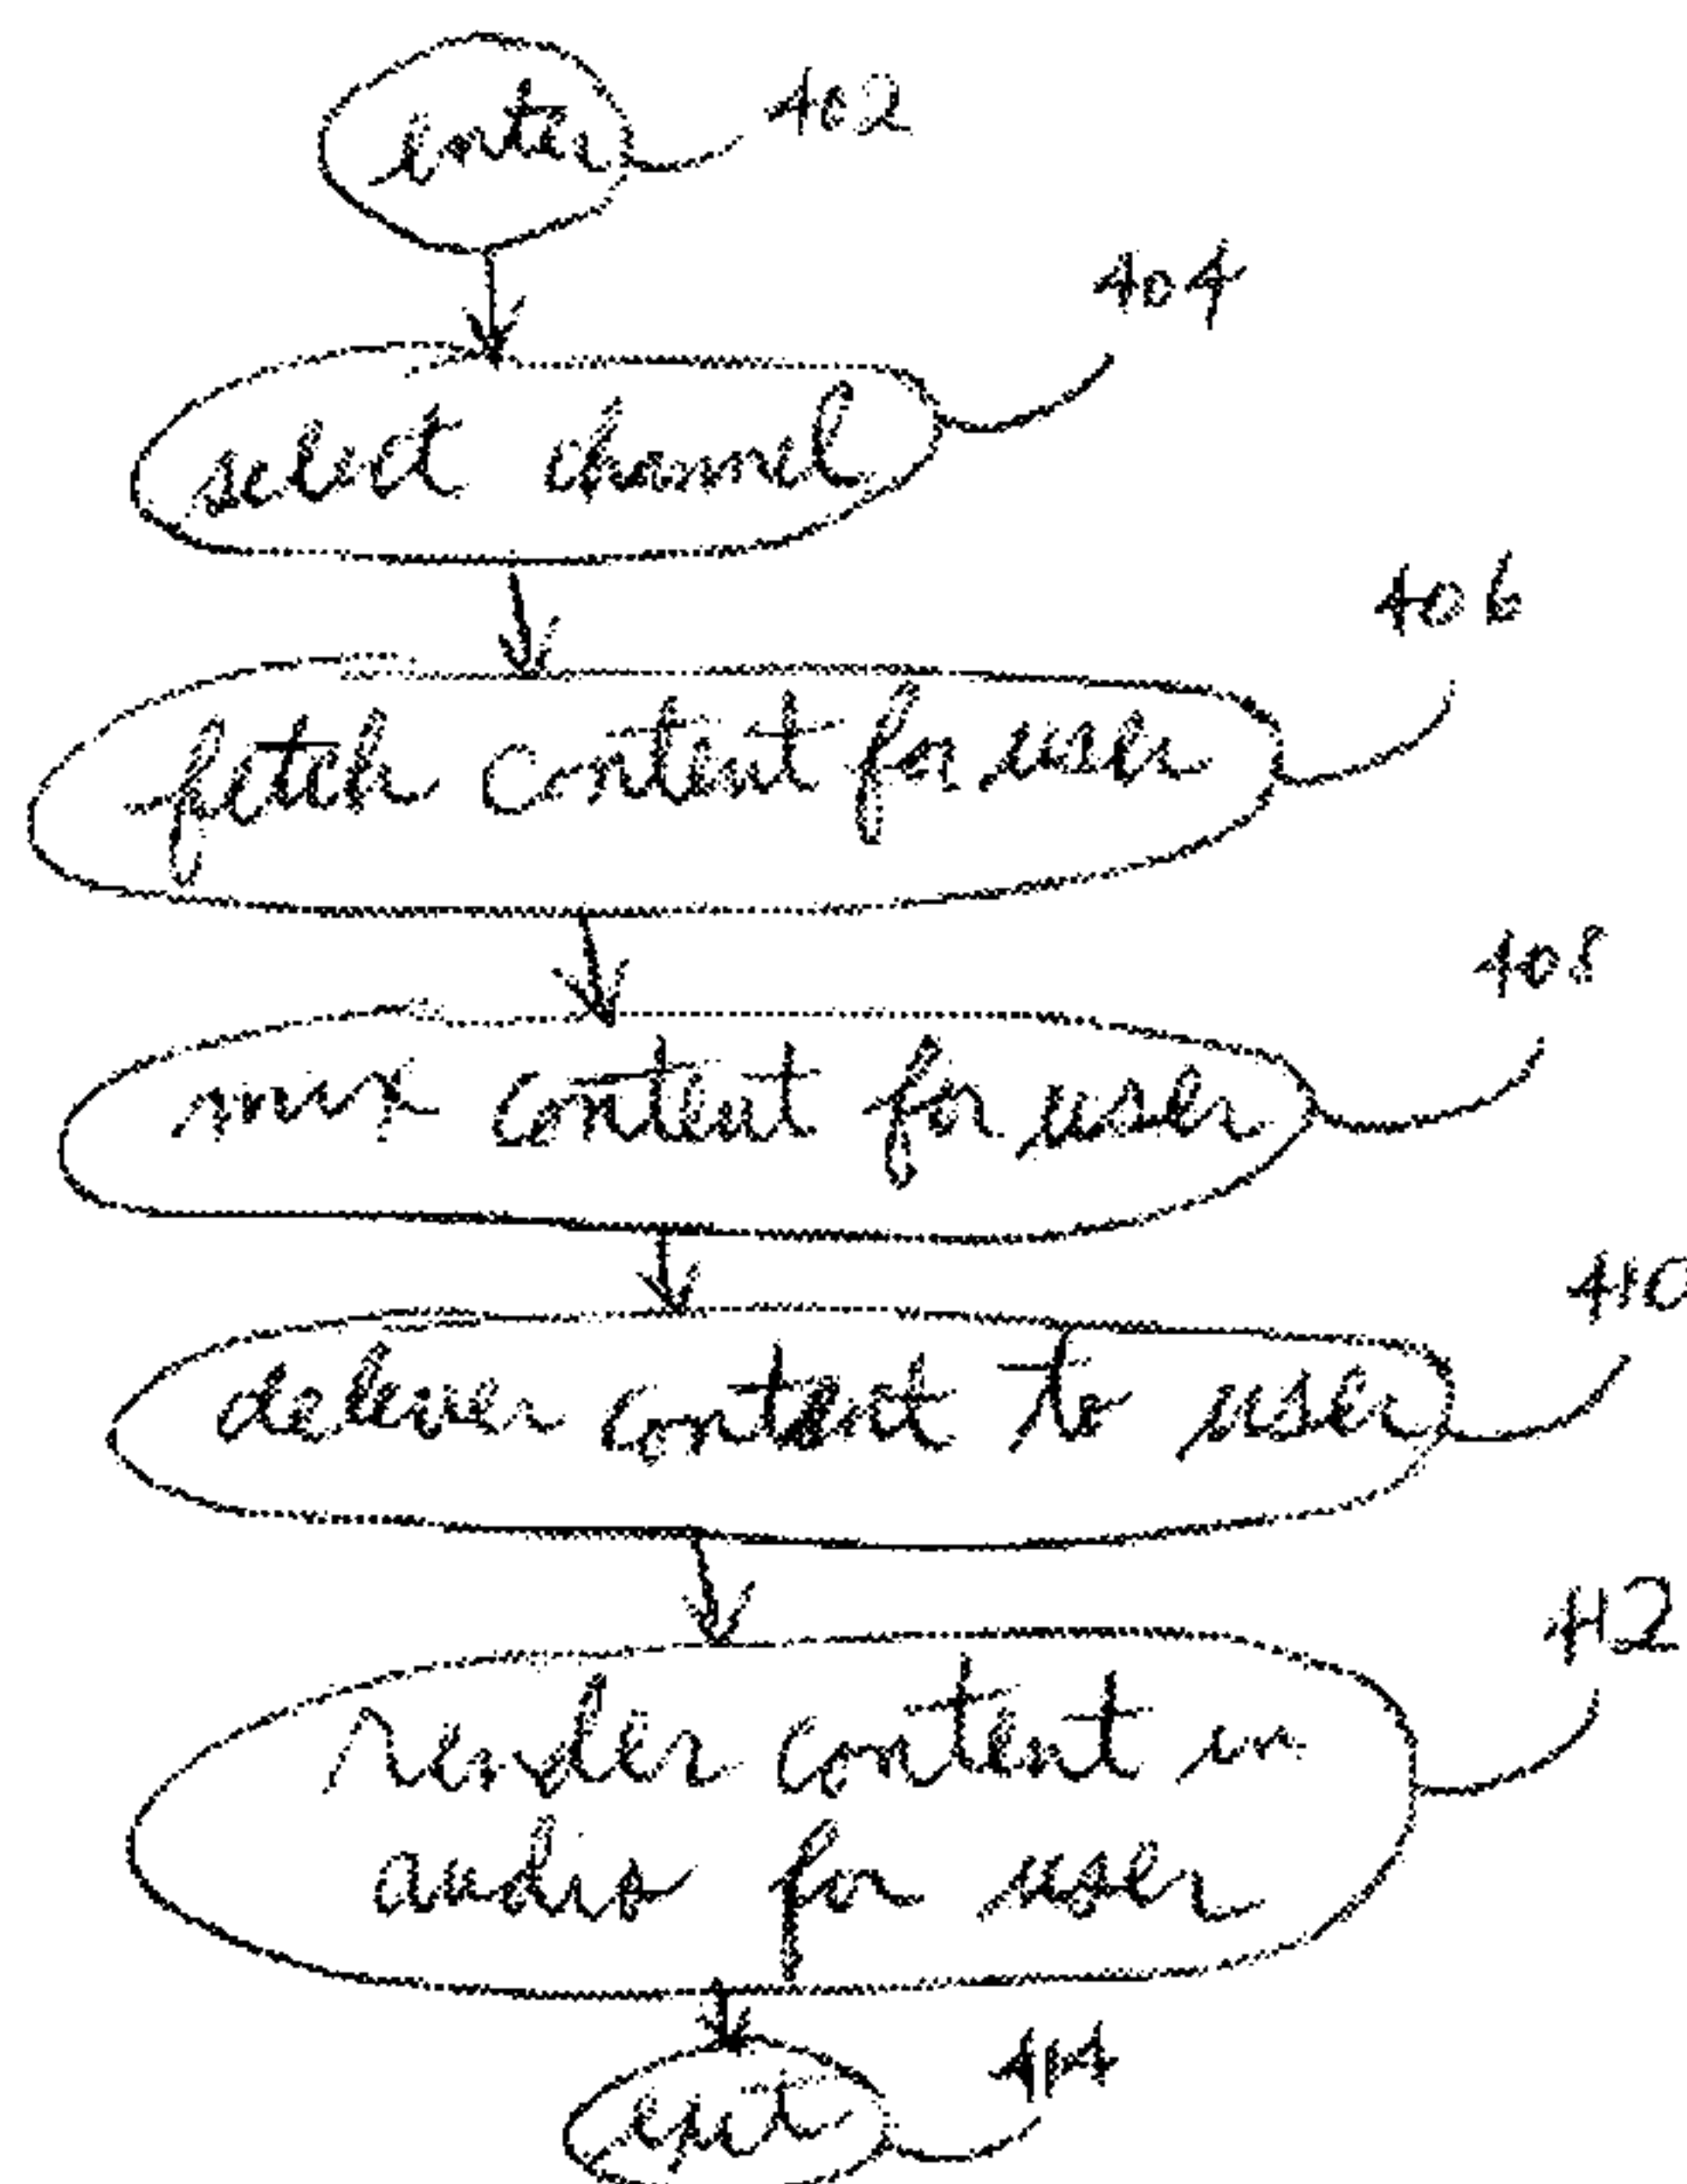 enter 402
select channel 404
fetch content for user 406
mix content for user 408
deliver content to user 410
render content in 412
audio for user
exit 414